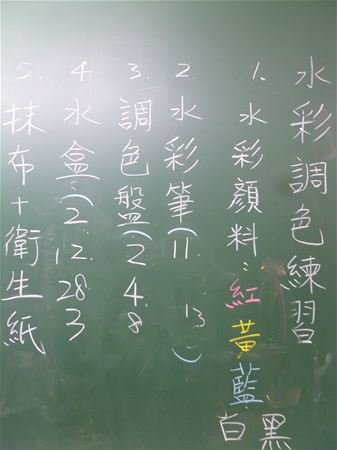 水彩調色練習
1. 水彩顏料：紅黃藍白黑
2. 水彩筆(11. 13)
3. 調色盤(2 4 8
4. 水盒：(2 12. 28 3
5. 抹布+衛生紙